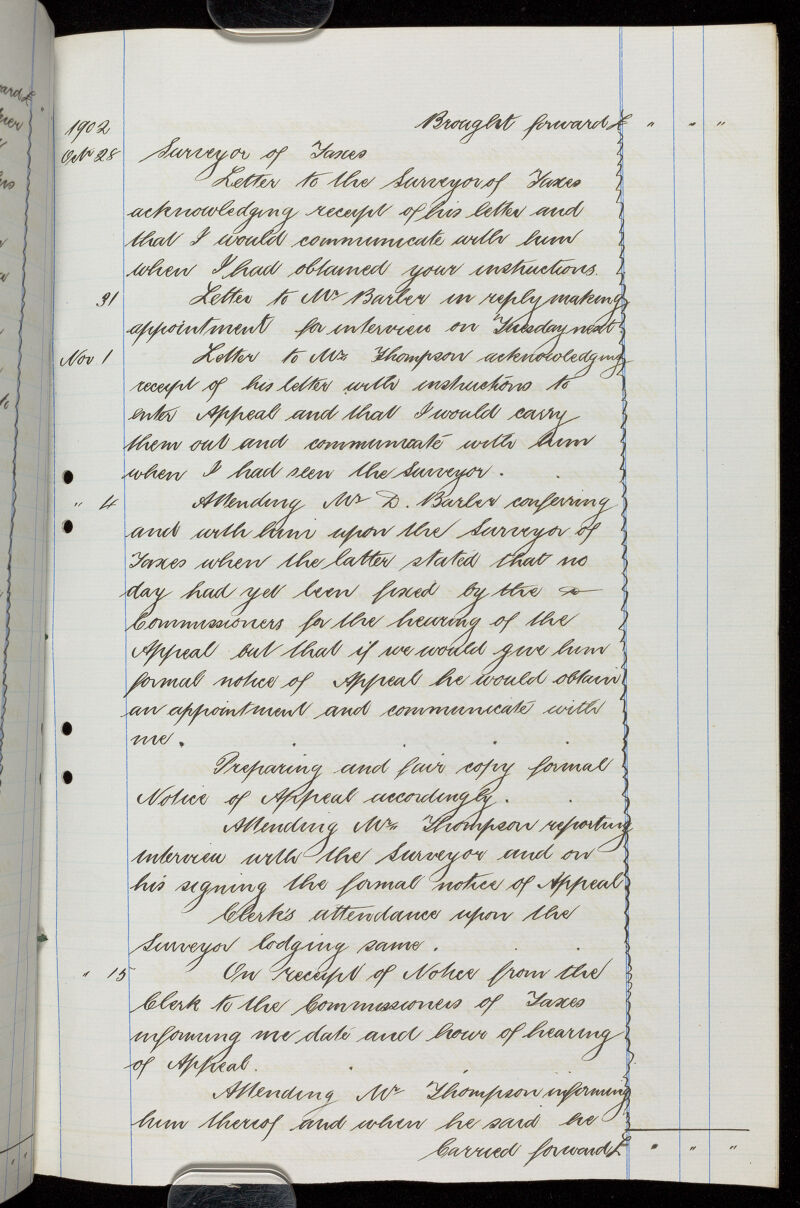 1902 Brought forward £ " " "
Octr 28 Surveyor of Taxes
Letter to the Surveyor of Taxes
acknowledging receipt of his letter and
that I would communicate with him
when I had obtained your instructions.
31 Letter to Mr Barber in reply making
appointment for interview on Tuesday next
Nov 1 Letter to Mr Thompson acknowledging
receipt of his letter with instructions to
enter Appeal and that I would carry
them out and communicate with him
when I had seen the Surveyor.
" 4 Attending Mr D. Barber conferring
and with him upon the Surveyor of
Taxes when the latter stated that no
day had yet been fixed by the
Commissioners for the hearing of the
Appeal but that if we would give him
formal notice of Appeal he would obtain
an appointment and communicate with
me.
Preparing and fair copy formal
Notice of Appeal accordingly.
Attending Mr Thompson reporting
interview with the Surveyor and on
his signing the formal notice of Appeal
Clerk's attendance upon the
Surveyor lodging same.
" 15 On receipt of Notice from the
Clerk to the Commissioners of Taxes
informing me date and hour of hearing
of Appeal.
Attending Mr Thompson informing
him thereof and when he said he
Carried forward £ " " "